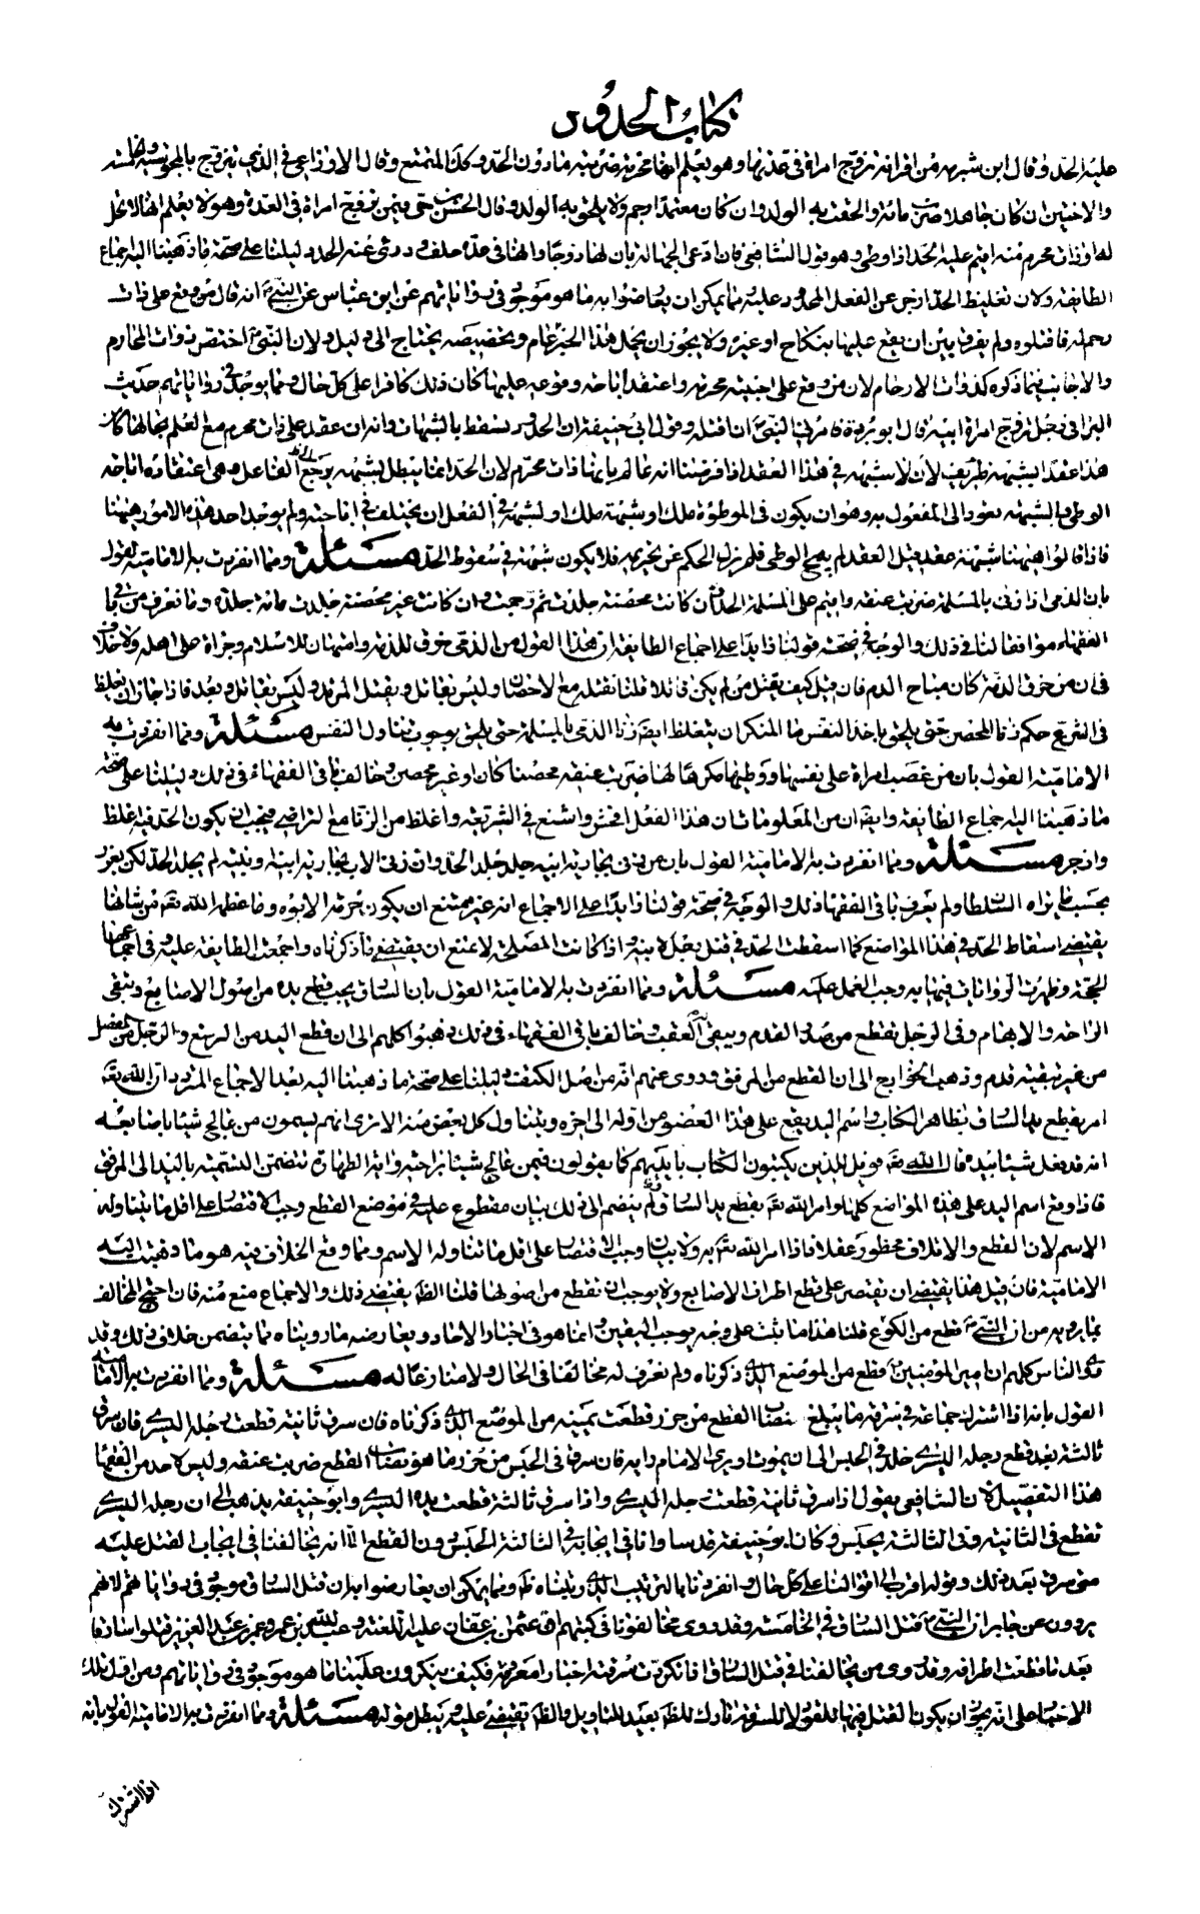 كتاب الحدود
عليه الحد وقال ابن شبرمه من اقر انه تزوج امراة في عدتها وهو يعلم انها محرمة ضربته ما دون الحد وكك المتمتع وقال الاوزاعي في الذي يتزوج بالمجوسيه وبالخامسه
والاختين ان كان جاهلا ضرب مائة والحقت به الولد وان كان معتمدا رجم ولا يلحق به الولد وقال الحسن بن حي فيمن تزوج امراة في العدة وهو لا يعلم انها لا تحل
له او ذات محرم منه اقيم عليه الحد اذا وطئ وهو قول الشافعي فان ادعى الجهالة بان لها زوجا وانها في عدة حلف ودرئ عنه الحد دليلنا على صحة ما ذهبنا اليه اجماع
الطايفة ولان تغليظ الحد ازجر عن الفعل المحدود عليه ومما يمكن ان يعارضوا به ما هو موجود في رواياتهم عن ابن عباس عن النبي ص انه قال من وقع على ذات
رحم له فاقتلوه ولم يفرق بين ان يقع عليها بنكاح او غيره ولا يجوز ان يحمل هذا الخبر عام وتخصيصه يحتاج الى دليل ولان النبي ص اختص ذوات المحارم
والاجانب فيما ذكره كذوات الارحام لان من وقع على اجنبية محرمة واعتقد اباحته وقوعه عليها كان ذلك كافرا على كل حال ومما يوجد في رواياتهم حديث
البراء في رجل تزوج امراة ابيه قال ابو بردة فامرني النبي ص ان اقتله وقول ابي حنيفة ان الحدود تسقط بالشبهات وانه ان عقد على ذات محرم مع العلم بحالها كان
هذا عقد الشبهة طريف لانه لا شبهة في هذا العقد اذا فرضنا انه عالم بانها ذات محرم لان الحد انما يبطل بشبهة يرجع الى الفاعل وهي اعتقاده اباحة
الوطي والشبهة تعود الى المفعول به وهو ان يكون في الموطوءة ملك او شبهة ملك او لشبهة في الفعل ان يختلف في اباحته ولم يوجد احد هذه الامور هيهنا
فاذا قالوا هيهنا شبهة عقد قيل العقد لم يبح الوطي فلم يزل الحكم عن تحريمه فلا يكون شبهة في سقوط الحد مسئلة ومما انفردت به الامامية القول
بان الذمي اذا زنى بالمسلمة ضربت عنقه واقيم على المسلمة الحد فان كانت محصنة جلدت ثم رجمت وان كانت غير محصنة جلدت مائة جلدة وما نعرف من باقي
الفقهاء موافقا لنا في ذلك والوجه في صحة قولنا زايدا على اجماع الطايفة ان هذا القول من الذمي خرق للذمة وامتهان للاسلام وجراة على اهله ولا خلاف
في ان من خرق الذمة كان مباح الدم فان قيل كيف يقتل من لم يكن قاتلا قلنا نقتله مع الاحصان وليس بقاتل ويقتل المرتد وليس بقاتل وبعد فاذا جاز ان يغلظ
في الشرع حكم زنا المحصن حتى يلحق باخذ النفس فما المنكر ان يتغلظ ايضا زنا الذمي بالمسلمة حتى يلحق بوجوب تناول النفس مسئلة ومما انفردت به
الامامية القول بان من غصب امراة على نفسها ووطيها مكرها لها ضربت عنقه محصنا كان او غير محصن وخالف باقي الفقهاء في ذلك دليلنا على صحة
ما ذهبنا اليه اجماع الطايفة وايضا ان من المعلوم ان هذا الفعل افحش واشنع في الشريعة واغلظ من الزنا مع التراضي فيجب ان يكون الحد فيه اغلظ
وازجر مسئلة ومما انفردت به الامامية القول بان من زنى بجارية ابيه جلد جلد الحد وان زنى الاب بجارية ابنه وبنته لم يجلد الحد لكن يعزر
بحسب ما يراه السلطان ولم يعرف باقي الفقهاء ذلك والوجه في صحة قولنا زايدا على الاجماع انه غير ممتنع ان يكون حرمة الابوة وما عظمه الله تع من شانها
يقتضي اسقاط الحد في هذا المواضع كما اسقطت الحد في قتل بعد لابنه واذا كانت المصلحة لا تمتنع ان يقتضي ما ذكرناه واجمعت الطايفة عليه وفي اجماعها
الحجة وظهرت الروايات فيها به وجب العمل عليه مسئلة ومما انفردت به الامامية القول بان السارق يجب قطع يده من اصول الاصابع وتبقى
الراحة والابهام وفي الرجل يقطع من صدر القدم ويبقى له العقب وخالف باقي الفقهاء في ذلك وذهبوا كلهم الى ان قطع اليد من الرسغ والرجل من المفصل
من غير تبقية قدم وذهب الخوارج الى ان القطع من المرفق وروى عنهم انه من اصل الكتف دليلنا على صحة ما ذهبنا اليه بعد الاجماع المتردد ان الله تع
امر بقطع يد السارق بظاهر الكتاب واسم اليد يقع على هذا العضو من اوله الى اخره ويتناول كل بعض منه الا ترى انهم يسمون من عالج شيئا باصابعه
انه قد فعل شيئا بيده قال الله تع فويل للذين يكتبون الكتاب بايديهم كما يقولون فيمن عالج شيئا براحته واية الطهارة تتضمن التسمية باليد الى المرفق
فاذا وقع اسم اليد على هذه المواضع كلها وامر الله تع بقطع يد السارق ولم ينضم الى ذلك بيان مقطوع عليه في موضع القطع وجب الاقتصار على اقل ما يتناوله
الاسم لان القطع والاتلاف محظور عقلا فاذا امر الله تع به ولا بيان وجب الاقتصار على اقل ما تناوله الاسم ومما وقع الخلاف فيه هو ما ذهبت اليه
الامامية فان قيل هذا يقتضي ان يقتصر على قطع اطراف الاصابع ولا يوجب ان تقطع من اصولها قلنا الظ يقتضي ذلك والاجماع منع منه فان احتج المخالف
بما يروونه من ان النبي ص قطع من الكوع قلنا هذا ما ثبت على وجه يوجب اليقين وانما هو في اخبار الاحاد ويعارضه ما رويناه مما يتضمن خلاف ذلك وقد
روى الناس كلهم ان امير المؤمنين ع قطع من الموضع الذي ذكرناه ولم نعرف له مخالفا في الحال ولا منازعا له مسئلة ومما انفردت به الامامية
القول بانه اذا اشترك جماعة في سرقة ما يبلغ نصاب القطع من حرز قطعت يمينه من الموضع الذي ذكرناه فان سرق ثانية قطعت رجله اليسرى فان سرق
ثالثة بعد قطع رجله اليسرى خلد في الحبس الى ان يموت او يرى الامام رايه فان سرق في الحبس من حرز ما هو نصاب القطع ضربت عنقه وليس لاحد من الفقهاء
هذا التفصيل لان الشافعي يقول اذا سرق ثانية قطعت رجله اليسرى واذا سرق ثالثة قطعت يده اليسرى وابو حنيفة يذهب الى ان رجله اليسرى
تقطع في الثانية وفي الثالثة يحبس وكان ابو حنيفة قد ساوانا في ايجابه في الثالثة الحبس دون القطع الا انه يخالفنا في ايجاب القتل عليه
متى سرق بعد ذلك وقوله اقرب الى اقوالنا على كل حال وانفردنا بالترتيب الذي رتبناه ظ ومما يمكن ان يعارضوا به ان قتل السارق موجود في رواياتهم لانهم
يروون عن جابر ان النبي ص قتل السارق في الخامسة وقد روى مخالفونا في كتبهم ان عثمن بن عفان عليه اللعنة وعبد الله بن عمر وعمر بن عبد العزيز قتلوا سارقا
بعد ما قطعت اطرافه وقد روى من يخالفنا في قتل السارق اذا تكررت سرقته اخبارا معروفة فكيف ينكرون علينا ما هو موجود في رواياتهم ومن اول تلك
الاخبار على انه يجوز ان يكون القتل فيها للقود لا للسرقة تارك للظ بعيد التاويل والظ يقتضي عليه ويبطل قوله مسئلة ومما انفردت به الامامية القول بانه
اذا اشترك